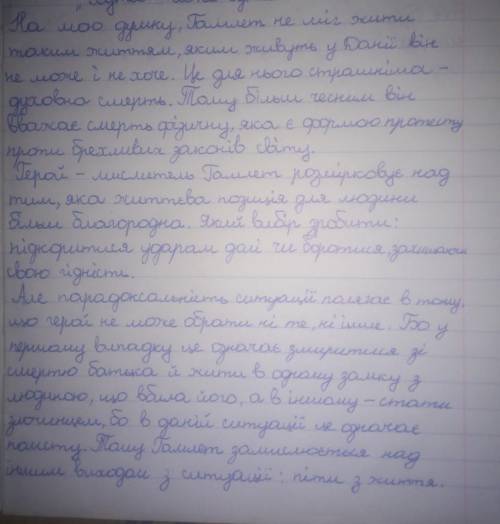 На мою думку, Гамлет не міг жити
таким життям, яким живуть у Данії він
не може і не хоче. Це для нього страшніша -
духовна смерть. Тому більш чесним він
вважає смерть фізичну, яка є формою протесту
проти брехливих законів світу.
Герой - мислитель Гамлет розмірковує над
тим, яка життєва позиція для людини
більш благородна. Який вибір зробити:
підкоритися ударам долі чи боротися, захищаючи
свою гідність.
Але парадоксальність ситуації полягає в тому,
що герой не може обрати ні те, ні інше. Бо у
першому випадку це означає змиритися зі
смертю батька й жити в одному замку з
людиною, що вбила його, а в іншому - стати
злочинцем, бо в даній ситуації це означає
помсту. Тому Гамлет замислюється над
іншим виходом з ситуації: піти з життя.